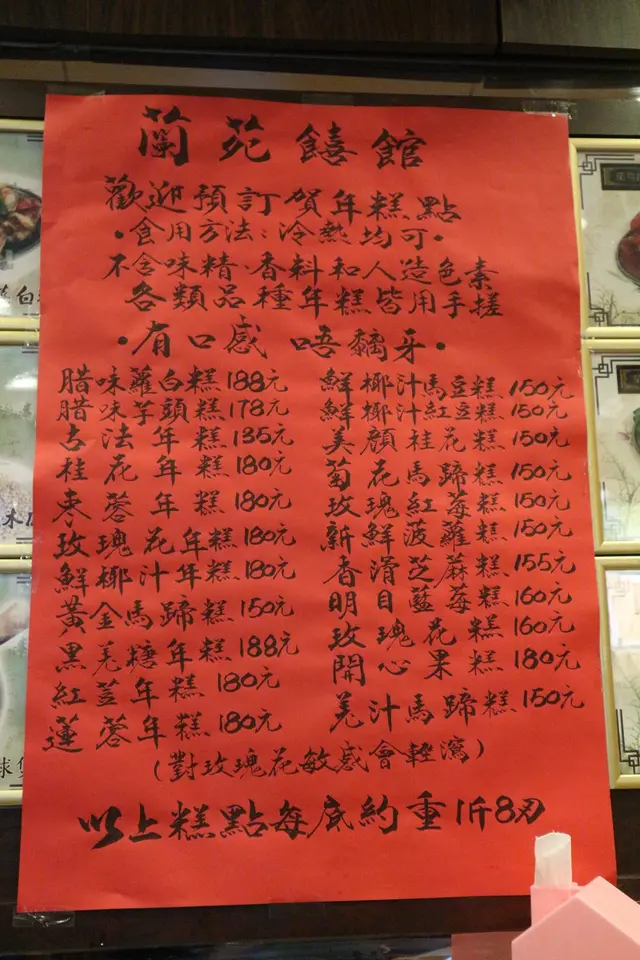 蘭苑饎館
歡迎預訂賀年糕點
·食用方法:冷熱均可·
不含味精·香料和人造色素
各類品種年糕皆用手搓
·有口感 唔黐牙·
腊味蘿白糕188元
腊味芋頭糕178元
古法年糕135元
桂花年糕180元
枣蓉年糕180元
玫瑰花年糕180元
鮮椰汁年糕180元
黃金馬蹄糕150元
黑羌糖年糕188元
紅荳年糕180元
蓮蓉年糕180元
鮮椰汁馬豆糕150元
鮮椰汁紅豆糕150元
美顏桂花糕150元
菊花馬蹄糕150元
玫瑰紅莓糕150元
新鮮菠蘿糕150元
香滑芝蔴糕155元
明目藍莓糕160元
玫瑰花糕160元
開心果糕180元
羌汁馬蹄糕150元
(對玫瑰花敏感會輕瀉)
以上糕點每底約重1斤8刃